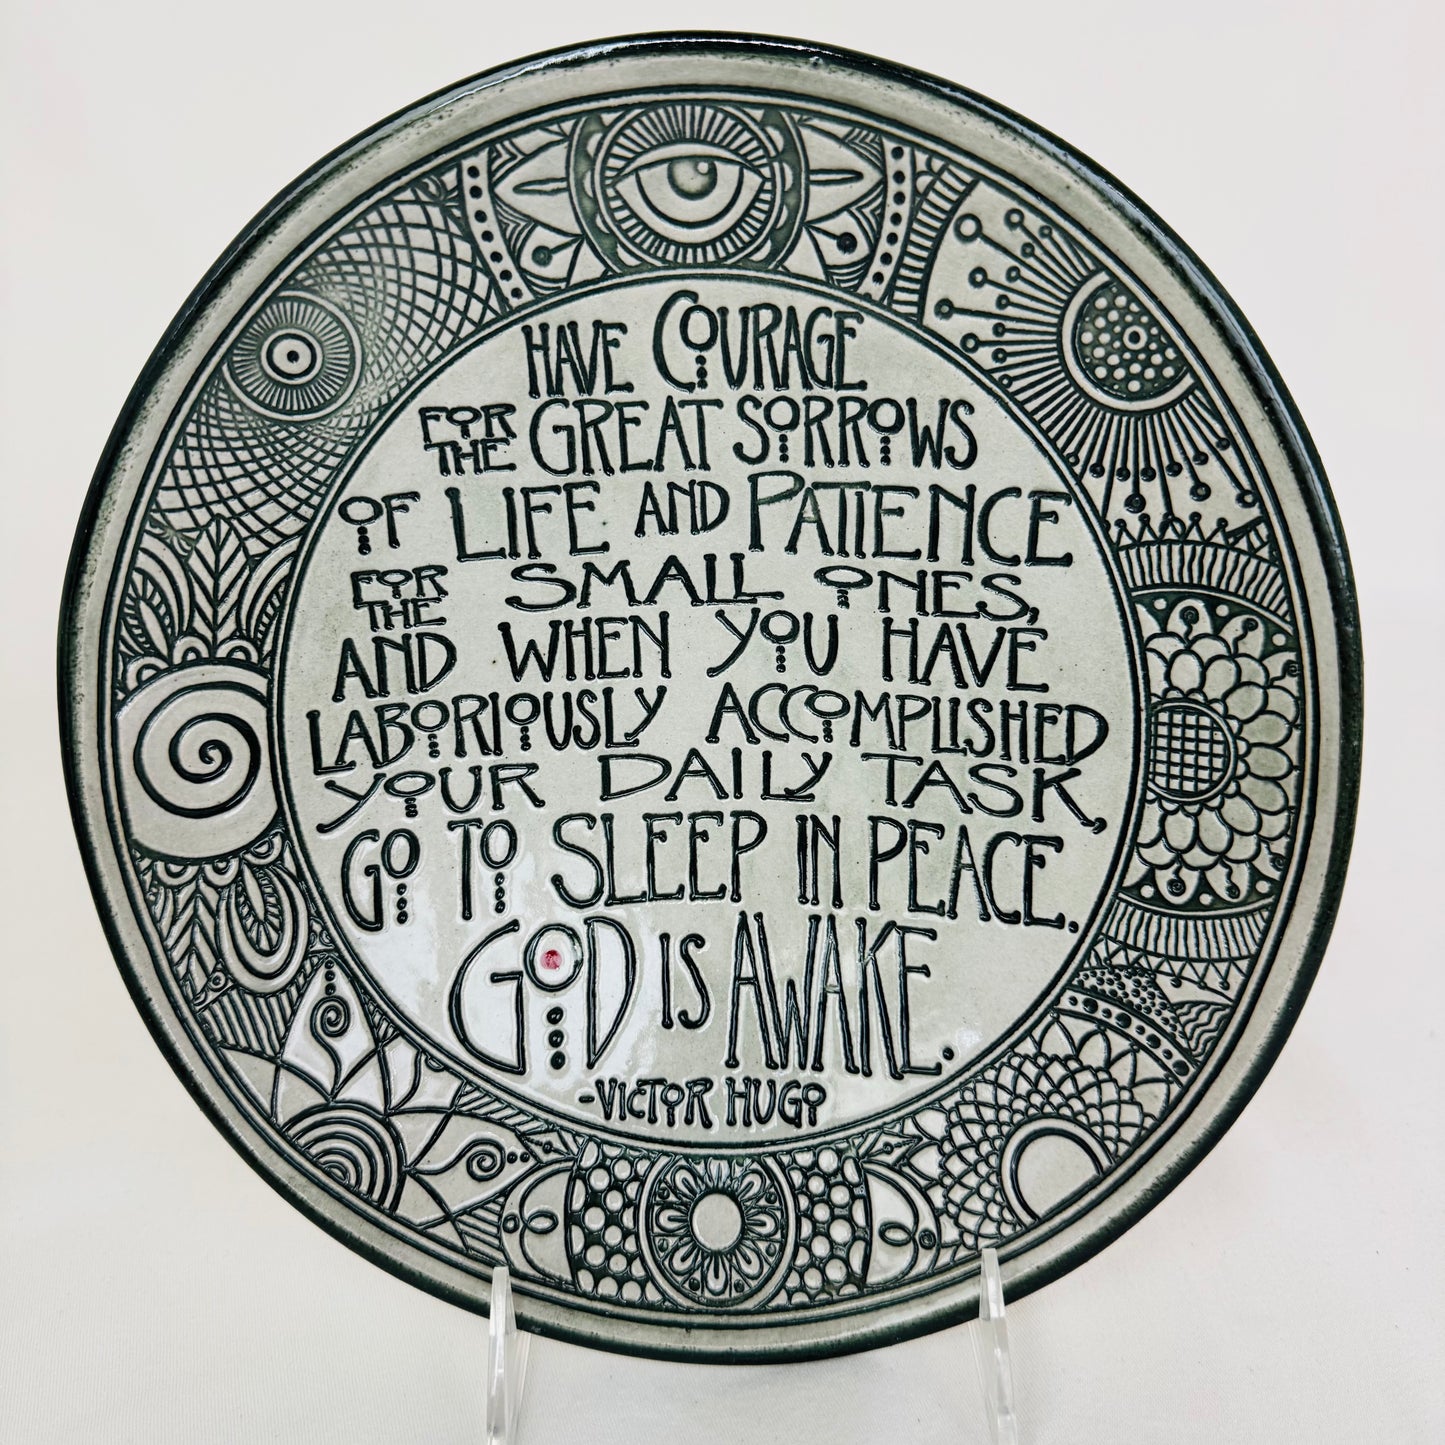 HAVE COURAGE
FOR THE GREAT SORROWS
OF LIFE AND PATIENCE
FOR THE SMALL ONES,
AND WHEN YOU HAVE
LABORIOUSLY ACCOMPLISHED
YOUR DAILY TASK,
GO TO SLEEP IN PEACE.
GOD IS AWAKE.
-VICTOR HUGO